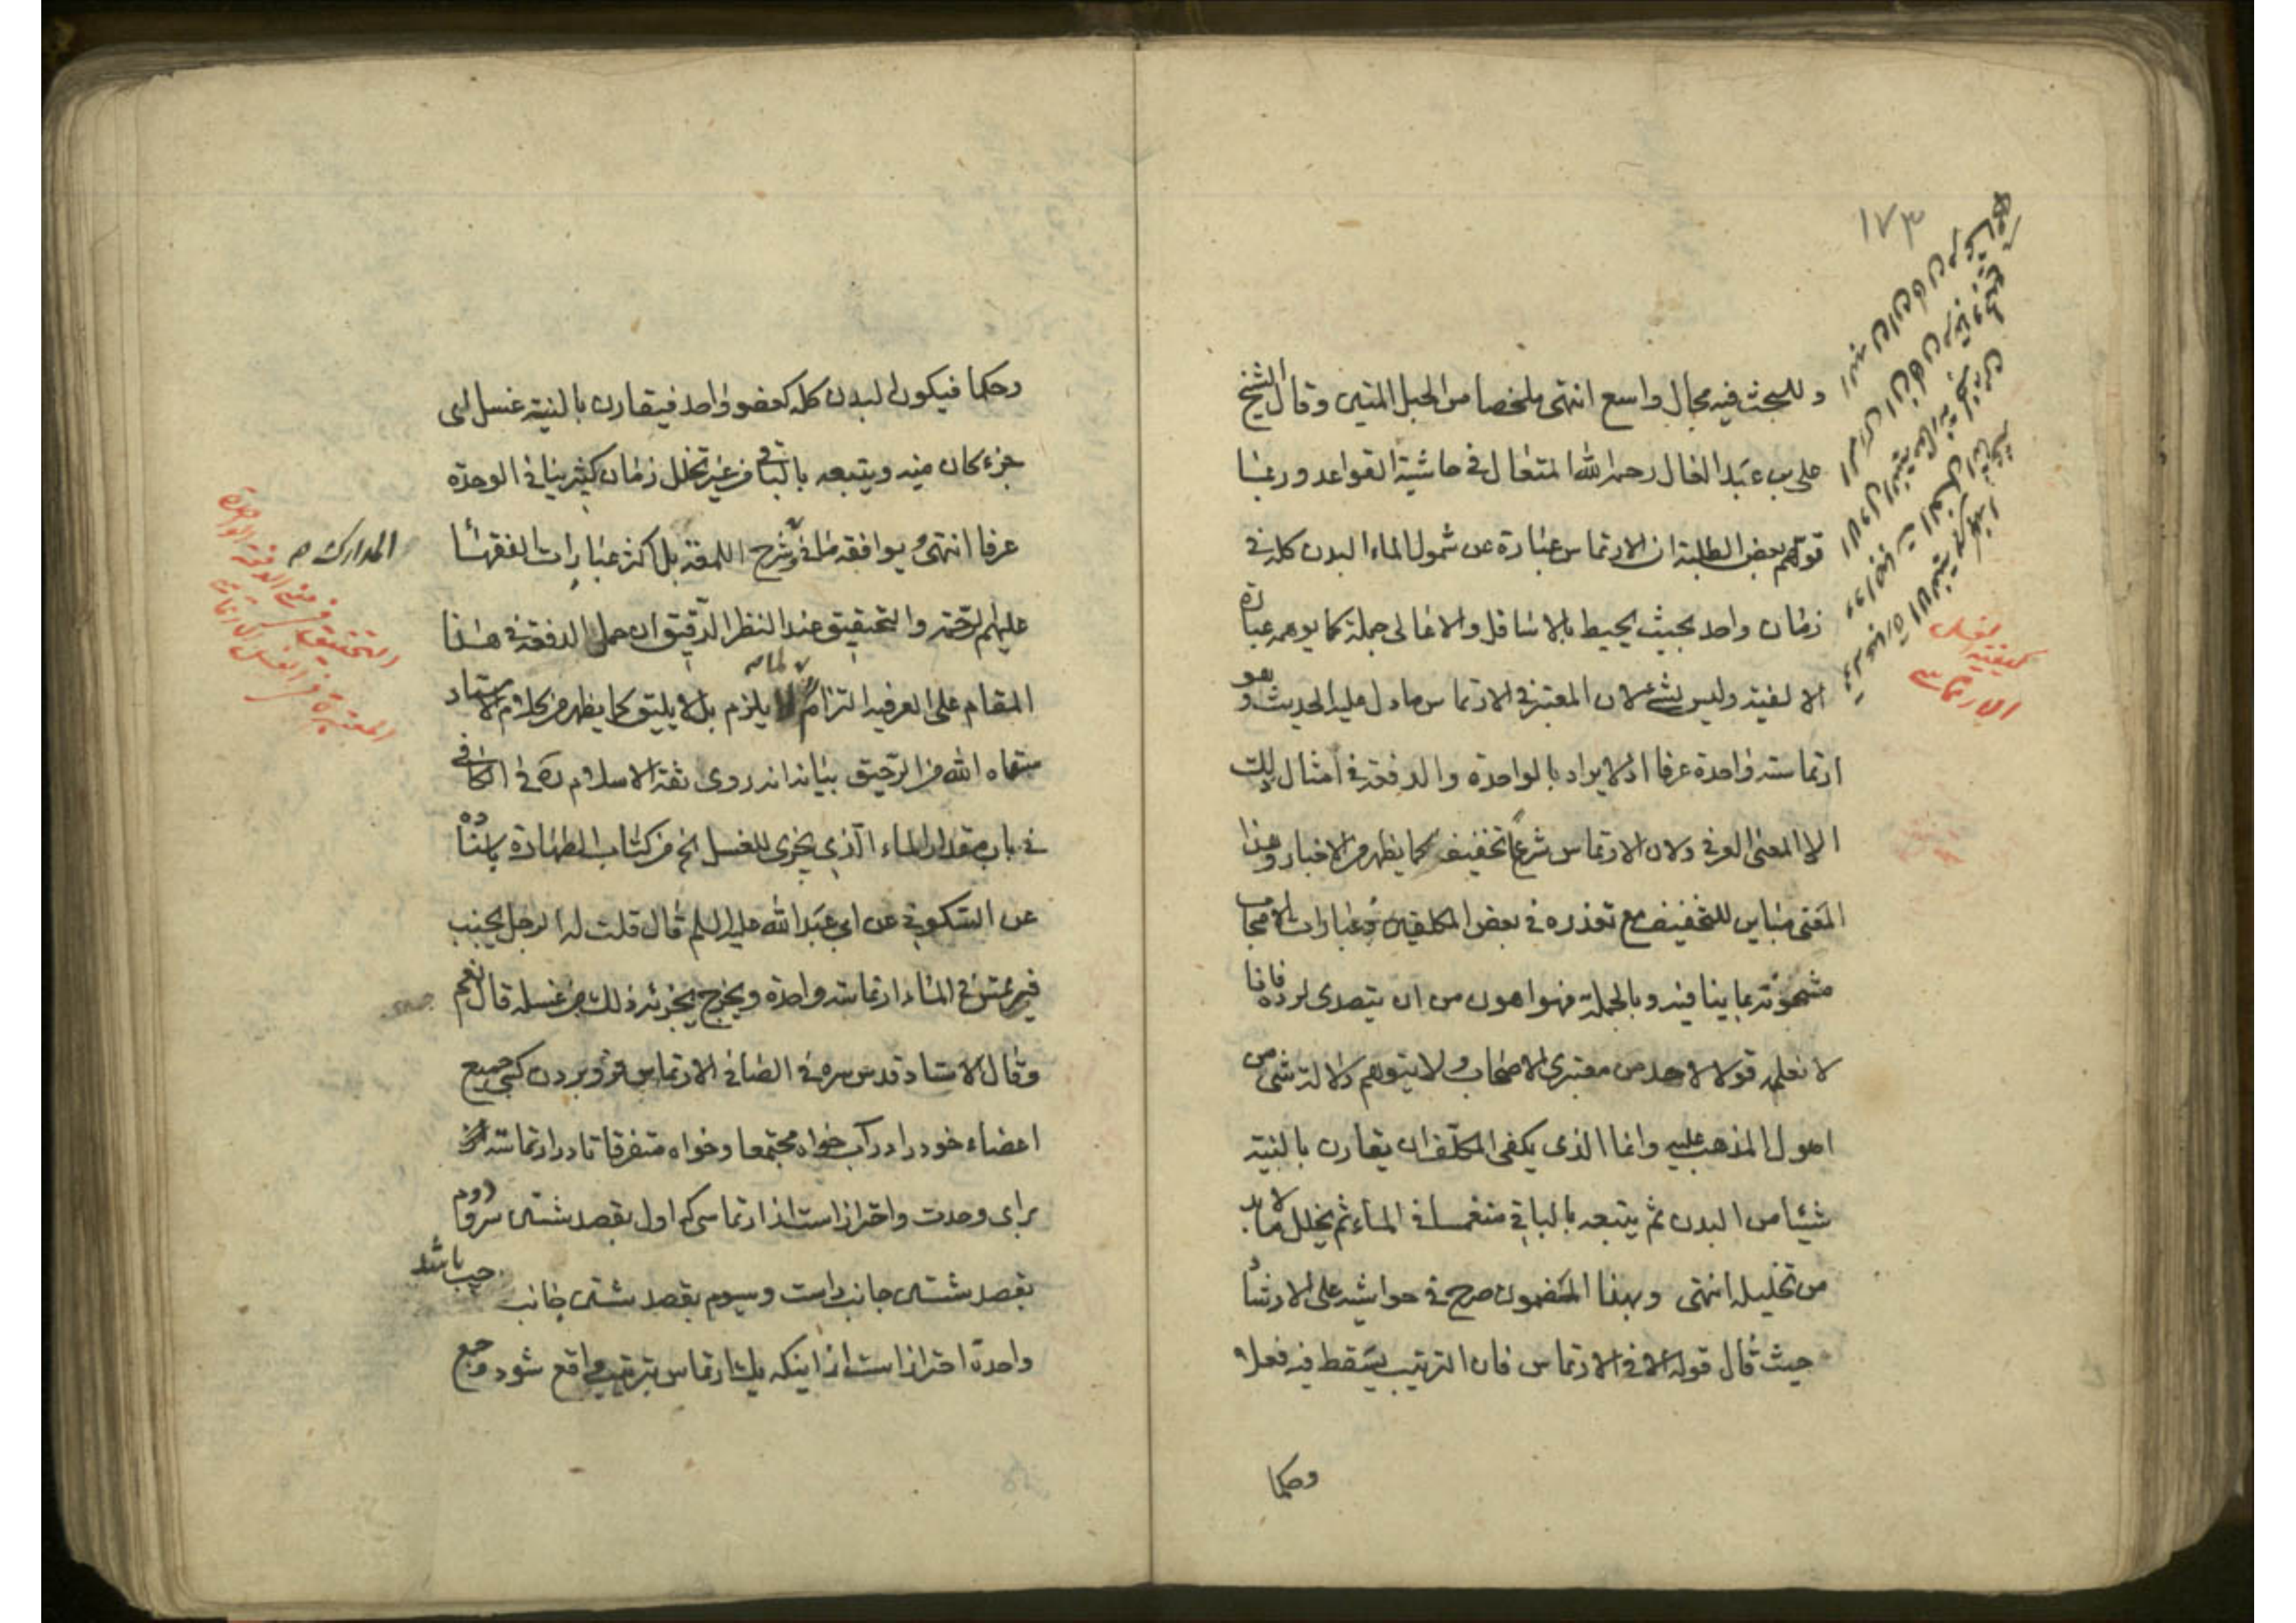 ١٧٣
وللبحث فيه مجال واسع انتهى ملخصا من الحبل المتين وقال الشيخ
على بن عبد العال رحمه الله المتعال في حاشية القواعد وربما
توهم بعض الطلبة ان الارتماس عبارة عن شمول الماء البدن كله في
زمان واحد بحيث يحيط بالاسافل والاعالى جملة كما يوهمه عبارة
الالفية وليس بشئ لان المعتبر في الارتماس ما دل عليه الحديث وهو
ارتماسة واحدة عرفا اذ لا يراد بالواحدة والدفعة في امثال ذلك
الا المعنى العرفي ولان الارتماس شرعا تخفيف كما يظهر من الاخبار وهذا
المعنى مباين للتخفيف مع تعذره في بعض المكلفين وعبارات الاصحاب
مشحونة بما ينافيه وبالجملة فهو اهون من ان يتصدى لرده فانا
لا نعلمه قولا لاحد من معتبرى الاصحاب ولا يتوهم دلالة شئ من
اصول المذهب عليه وانما الذى يكفى المكلف ان يقارن بالنية
شيئا من البدن ثم يتبعه بالباقي منغمسا في الماء ثم يخلل ما لابد
من تخليله انتهى وبهذا المضمون صرح في حواشيه على الارشاد
حيث قال قوله الا في الارتماس فان الترتيب يسقط فيه فعلا
وحكما
كيفية الغسل
الارتماسى
وحكما فيكون البدن كله كعضو واحد فيقارن بالنية غسل اى
جزء كان منه ويتبعه بالباقي من غير تخلل زمان كثير ينافي الوحدة
عرفا انتهى ويوافقه ما في وشرح اللمعة بل اكثر عبارات الفقهاء
المدارك صح
عليهم الرحمة والتحقيق عند النظر الدقيق ان حمل الدفعة في هذا
المقام على العرفية التزام لما لا يلزم بل لا يليق كما يظهر من كلام الاستاد
سقاه الله من الرحيق بيانه انه روى ثقة الاسلام ره في الكافي
في باب مقدار الماء الذي يجزى للغسل الخ من كتاب الطهارة باسناده
عن السكوني عن ابى عبد الله عليه السلم قال قلت له الرجل يجنب
فيرتمس في الماء ارتماسة واحدة ويخرج يجزئه ذلك من غسله قال نعم
وقال الاستاد قدس سره في الصافي الارتماس فرو بردن كسى جميع
اعضاء خود را در آب خواه مجتمعا وخواه متفرقا تا در ارتماسة
براى وحدت واحتراز است از ارتماسى كه اول بقصد شستن سر ودوم
بقصد شستن جانب راست وسيوم بقصد شستن جانب چپ باشد
واحدة احتراز است از اينكه يك ارتماس بترتيب واقع شود وجمع
التحقيق في معنى الدفعة الواحدة
المعتبرة في الغسل الارتماسى